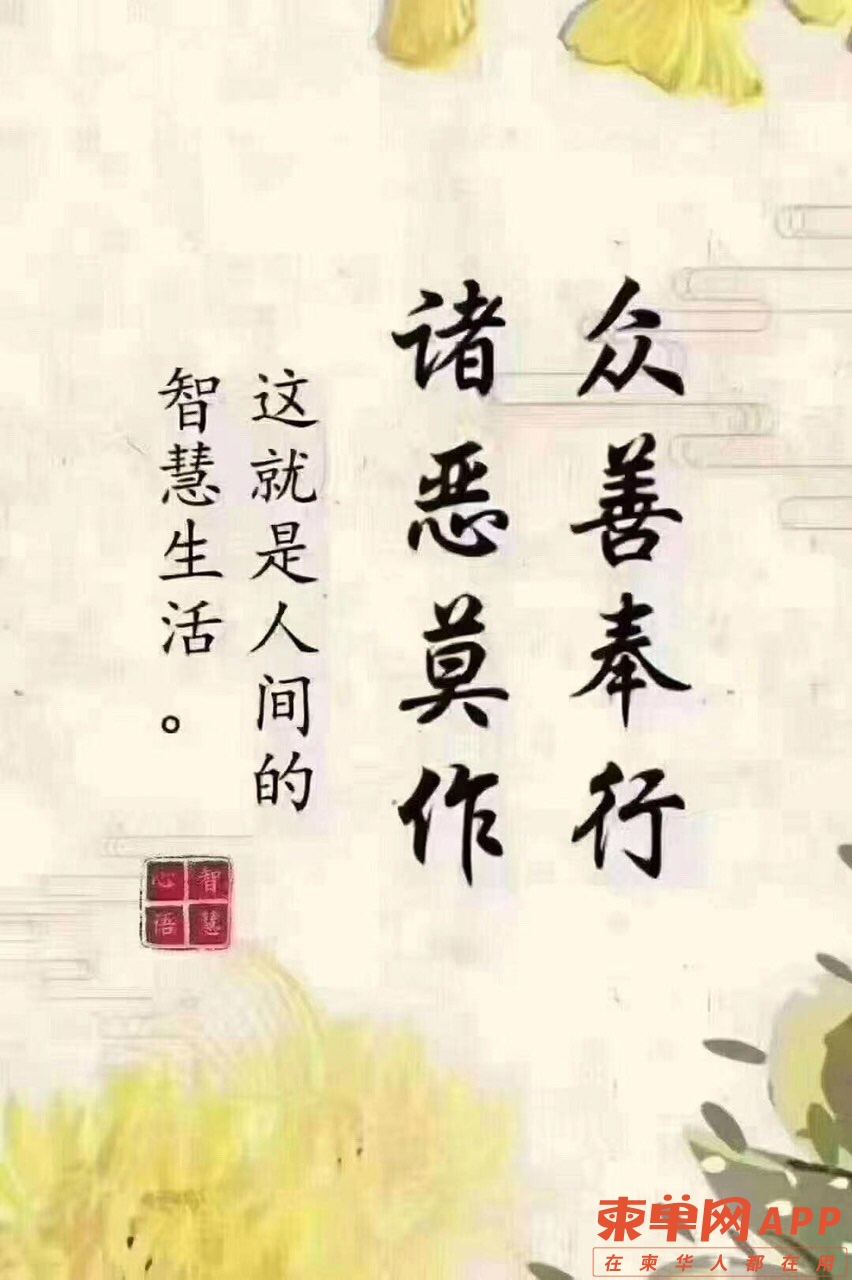 众善奉行
诸恶莫作
这就是人间的
智慧生活。
智慧
心语
柬单网APP
在柬华人都在用